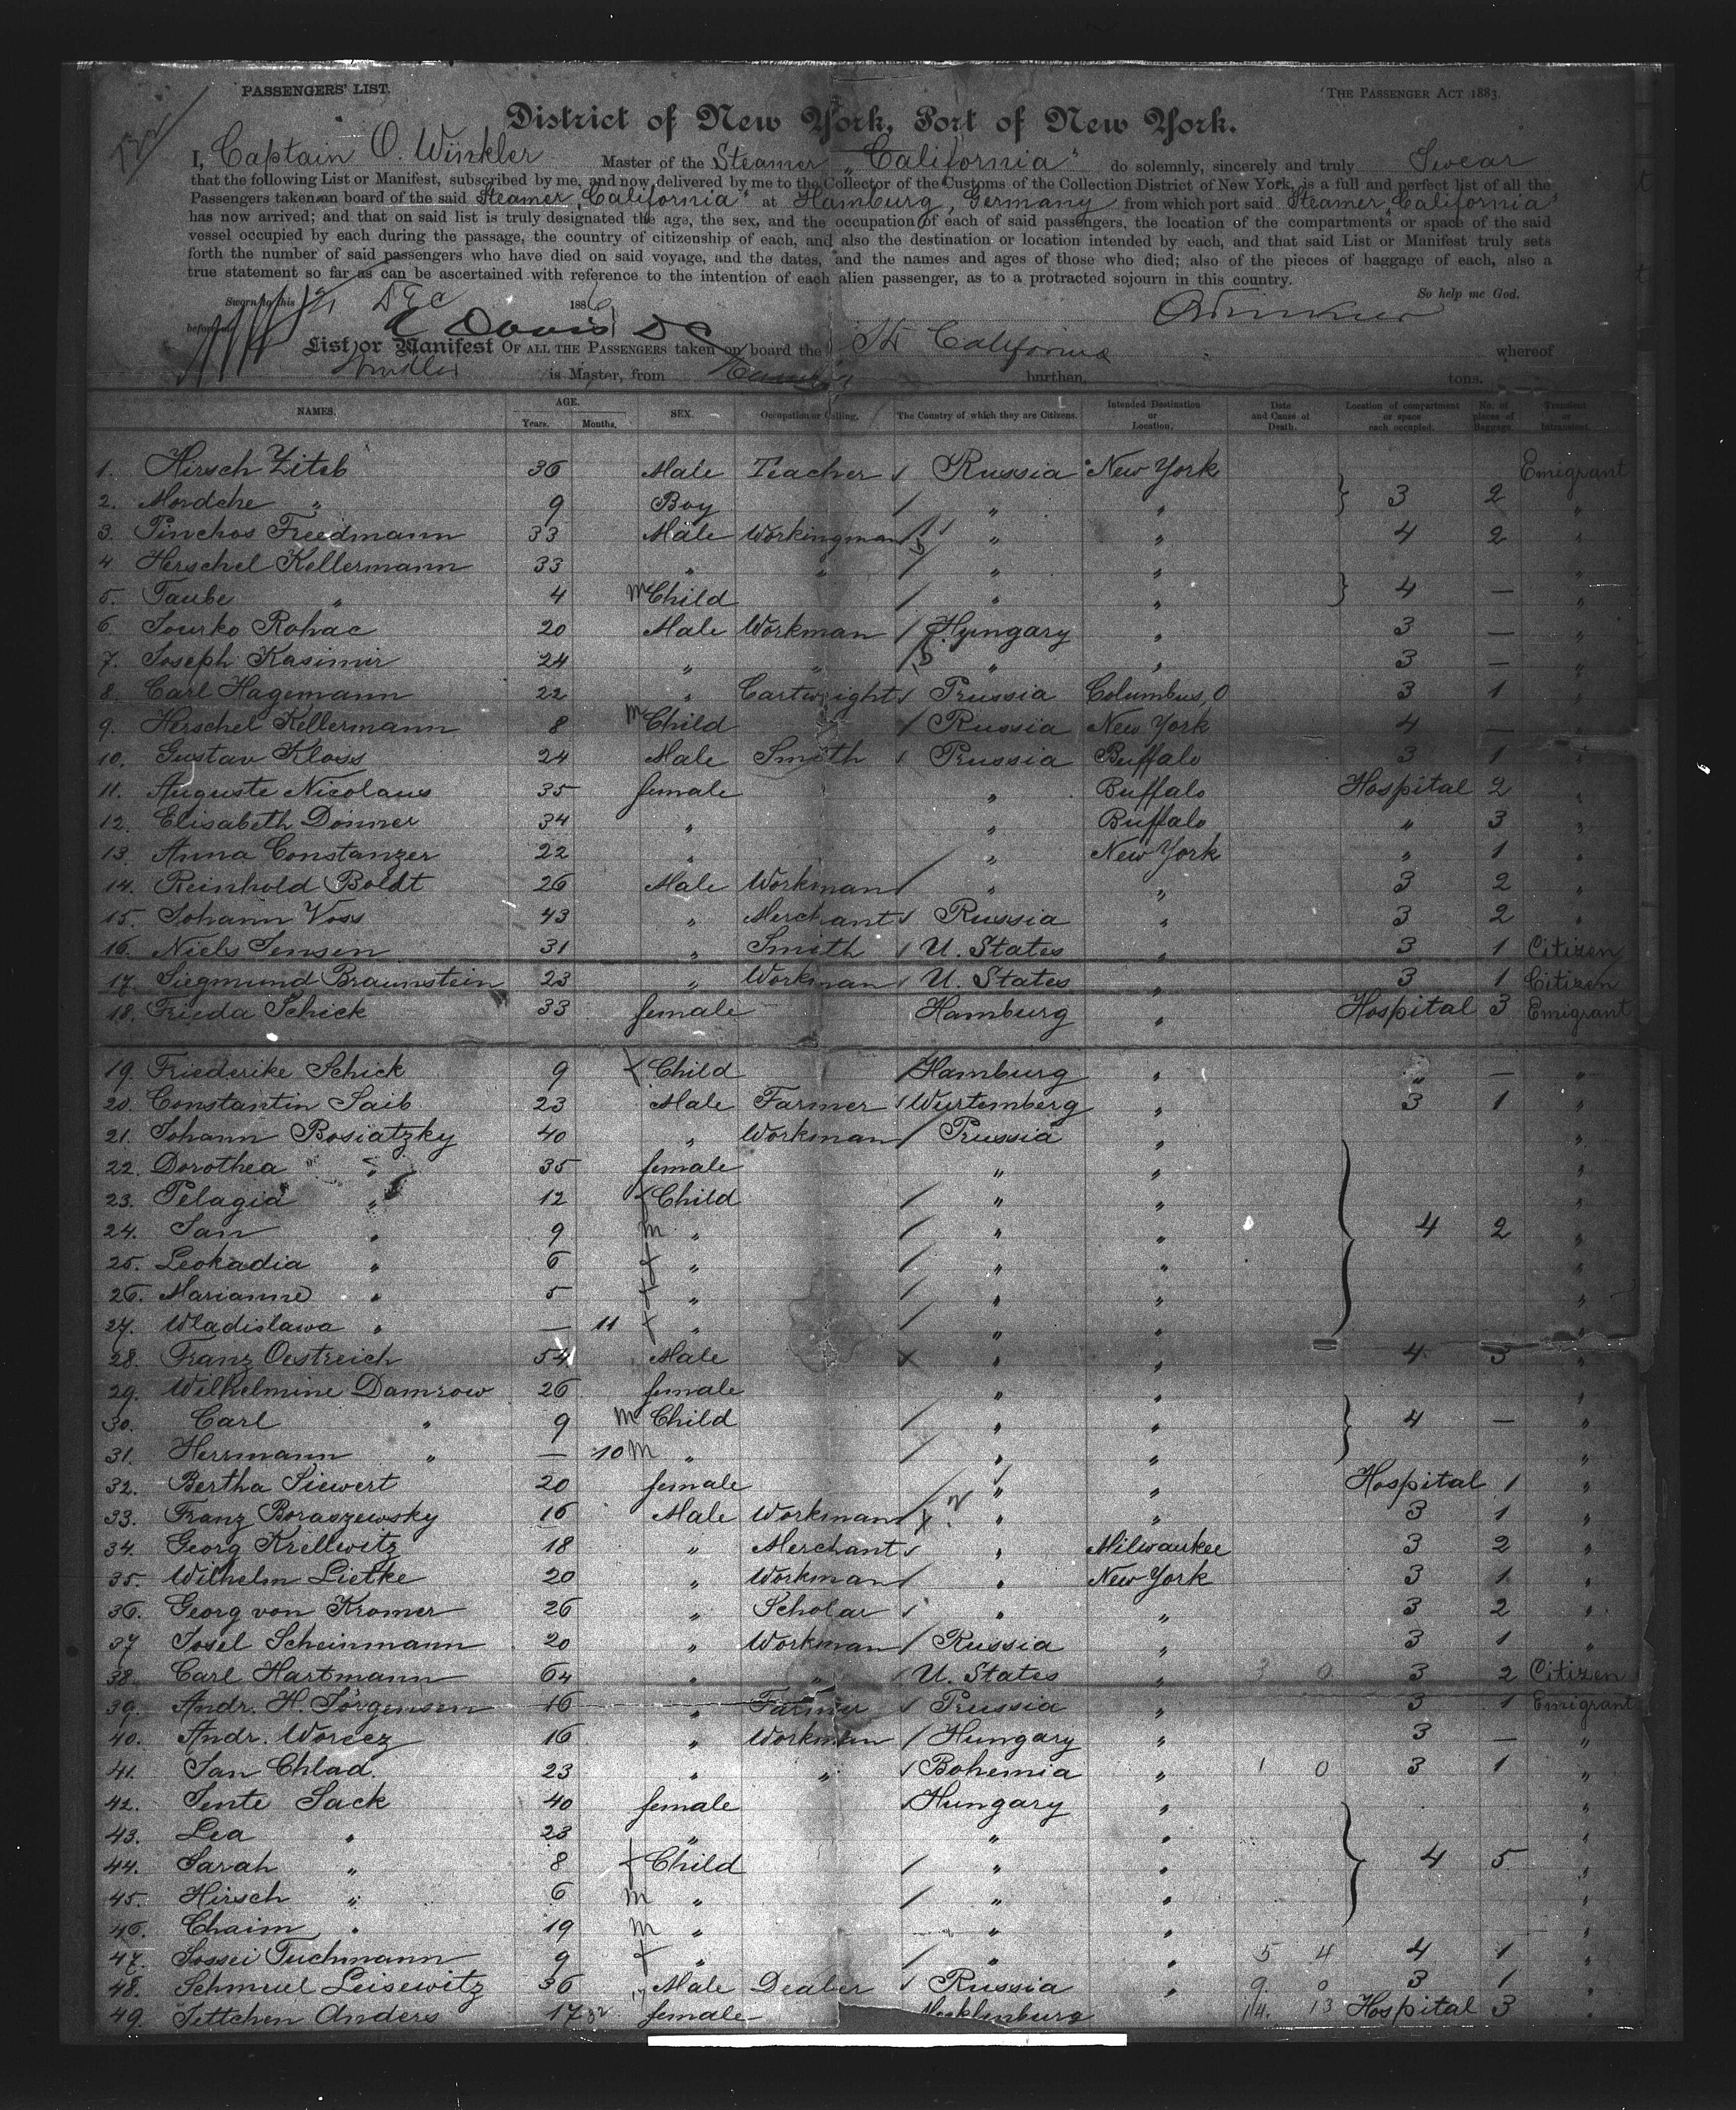 PASSENGERS' LIST.
THE PASSENGER ACT 1883.
District of New York, Port of New York.
I, Captain O. Winkler Master of the Steamer „California" do solemnly, sincerely and truly Swear
that the following List or Manifest, subscribed by me, and now delivered by me to the Collector of the Customs of the Collection District of New York, is a full and perfect list of all the
Passengers taken on board of the said Steamer „California" at Hamburg, Germany from which port said Steamer „California"
has now arrived; and that on said list is truly designated the age, the sex, and the occupation of each of said passengers, the location of the compartments or space of the said
vessel occupied by each during the passage, the country of citizenship of each, and also the destination or location intended by each, and that said List or Manifest truly sets
forth the number of said passengers who have died on said voyage, and the dates, and the names and ages of those who died; also of the pieces of baggage of each, also a
true statement so far as can be ascertained with reference to the intention of each alien passenger, as to a protracted sojourn in this country.
So help me God.
Sworn to this 21 Dec 1886
before me
O Winkler
List or Manifest OF ALL THE PASSENGERS taken on board the California whereof
Winkler is Master, from Hamburg burthen, tons.
NAMES. AGE. Years. Months. SEX. Occupation or Calling. The Country of which they are Citizens. Intended Destination or Location. Date and Cause of Death. Location of compartment or space each occupied. No. of pieces of Baggage. Transient or Intransient.
1. Hirsch Ziteb 36 Male Teacher Russia New York Emigrant
2. Mordche „ 9 Boy „ „ 3 2 „
3. Pinchos Freedmann 33 Male Workingman „ „ 4 2 „
4. Herschel Kellermann 33 „ „ „ „ „
5. Taube „ 4 m Child „ „ 4 — „
6. Jourko Rohac 20 Male Workman Hungary „ 3 — „
7. Joseph Kasimir 24 „ „ „ „ 3 — „
8. Carl Hagemann 22 „ Cartwright Prussia Columbus, O 3 1 „
9. Herschel Kellermann 8 m Child Russia New York 4 — „
10. Gustav Kloss 24 Male Smith Prussia Buffalo 3 1 „
11. Auguste Nicolaus 35 female „ Buffalo Hospital 2 „
12. Elisabeth Donner 34 „ „ Buffalo „ 3 „
13. Anna Constanzer 22 „ „ New York „ 1 „
14. Reinhold Boldt 26 Male Workman „ „ 3 2 „
15. Johann Voss 43 „ Merchant Russia „ 3 2 „
16. Niels Jensen 31 „ Smith U. States „ 3 1 Citizen
17. Siegmund Braunstein 23 „ Workman U. States „ 3 1 Citizen
18. Frieda Schick 33 female Hamburg „ Hospital 3 Emigrant
19. Friederike Schick 9 f Child Hamburg „ „ — „
20. Constantin Saib 23 Male Farmer Wurtemberg „ 3 1 „
21. Johann Bosiatzky 40 „ Workman Prussia „ „
22. Dorothea „ 35 female „ „ „
23. Pelagia „ 12 f Child „ „ „
24. Jan „ 9 m „ „ „ 4 2 „
25. Leokadia „ 6 f „ „ „ „
26. Marianne „ 5 f „ „ „ „
27. Wladislawa „ — 11 f „ „ „ „
28. Franz Oestreich 54 Male „ „ 4 3 „
29. Wilhelmine Damrow 26 female „ „ „
30. Carl „ 9 m Child „ „ 4 — „
31. Herrmann „ — 10 m „ „ „ „
32. Bertha Siewert 20 female „ „ Hospital 1 „
33. Franz Boraszewsky 16 Male Workman „ „ 3 1 „
34. Georg Krellwitz 18 „ Merchant „ Milwaukee 3 2 „
35. Wilhelm Lietke 20 „ Workman „ New York 3 1 „
36. Georg von Kromer 26 „ Scholar „ „ 3 2 „
37 Josel Scheinmann 20 „ Workman Russia „ 3 1 „
38. Carl Hartmann 64 „ „ U. States „ 3 0 3 2 Citizen
39. Andr. H. Jörgensen 16 „ Farmer Prussia „ 3 1 Emigrant
40. Andr. Worcez 16 „ Workman Hungary „ 3 — „
41. Jan Chlad. 23 „ „ Bohemia „ 1 0 3 1 „
42. Jente Sack 40 female Hungary „ „
43. Lea „ 23 „ „ „ „
44. Sarah „ 8 f Child „ „ 4 5 „
45. Hirsch „ 6 m „ „ „ „
46. Chaim „ 19 m „ „ „ „
47. Sossei Tuchmann 9 f „ „ „ 5 4 4 1 „
48. Schmuel Leisewitz 36 Male Dealer Russia „ 9 0 3 1 „
49. Jettchen Anders 17 female Mecklenburg 14. 13 Hospital 3 „